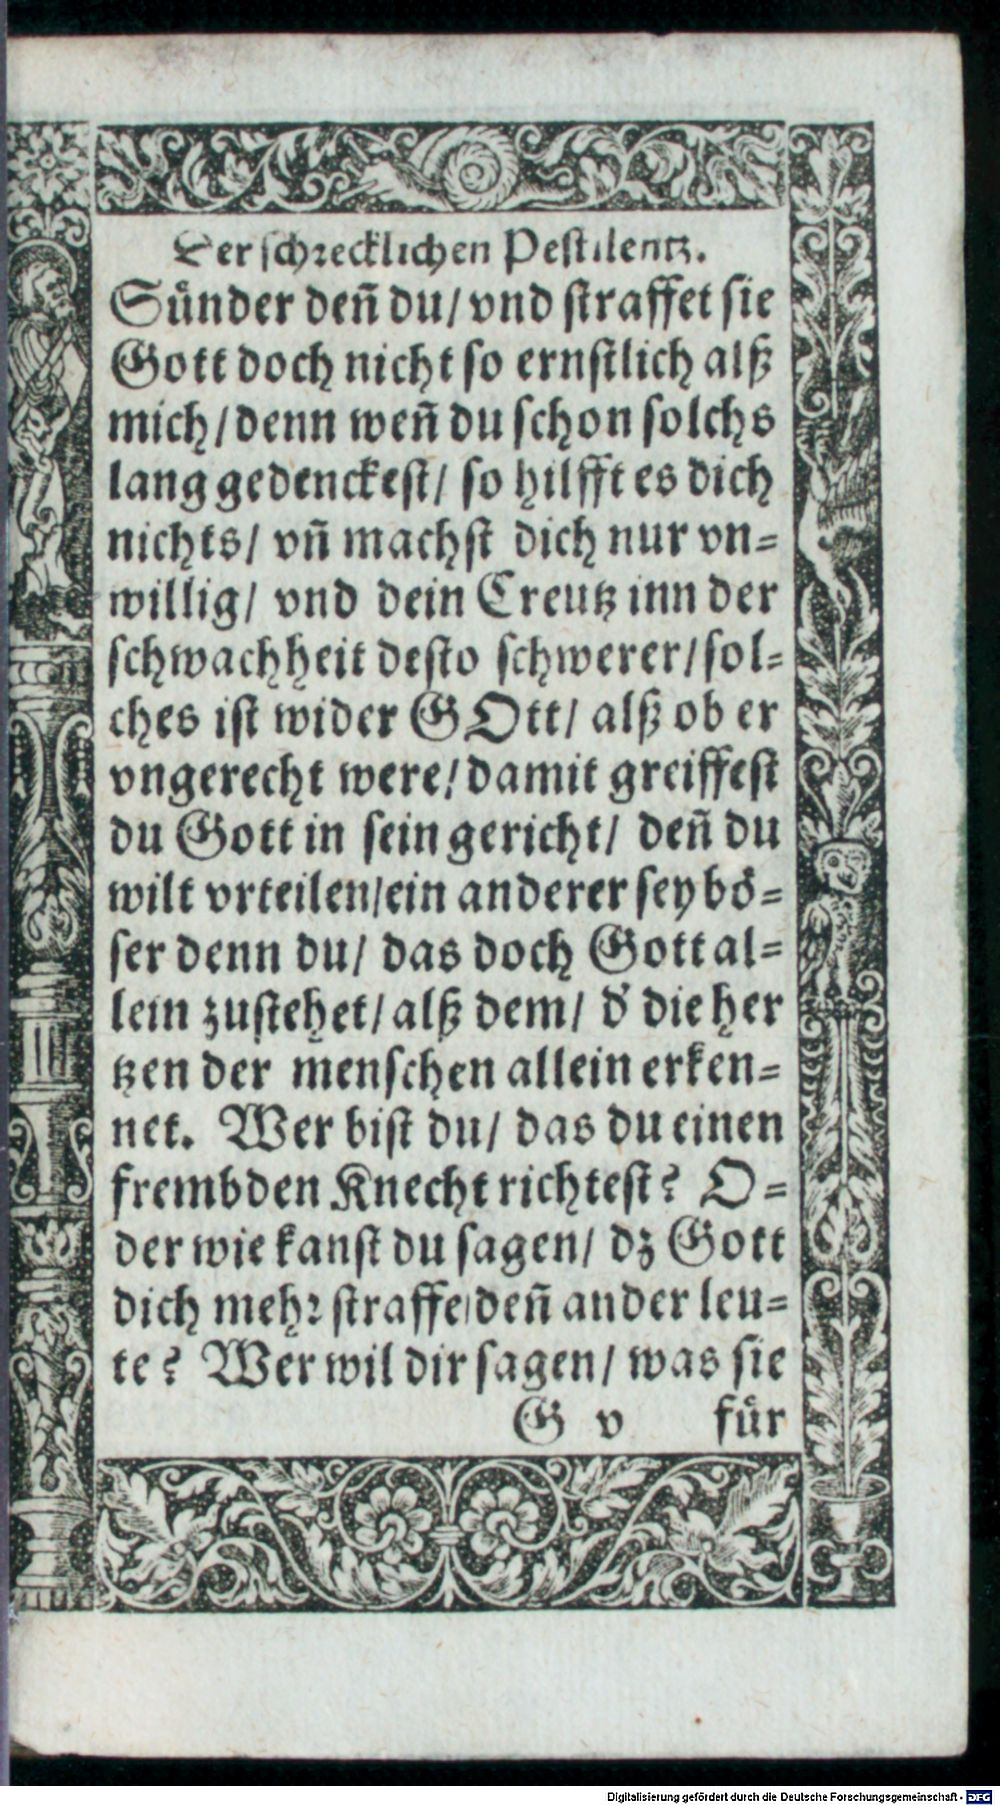 Der schrecklichen Pestilentz.
Sünder deñ du/ vnd straffet sie
Gott doch nicht so ernstlich alß
mich/ denn weñ du schon solchs
lang gedenckest/ so hilfft es dich
nichts/ vñ machst dich nur vn=
willig/ vnd dein Creutz inn der
schwachheit desto schwerer/ sol=
ches ist wider GOtt/ alß ob er
vngerecht were/ damit greiffest
du Gott in sein gericht/ deñ du
wilt vrteilen/ ein anderer sey bö=
ser denn du/ das doch Gott al=
lein zustehet/ alß dem/ d' die her
tzen der menschen allein erken=
net. Wer bist du/ das du einen
frembden Knecht richtest? O=
der wie kanst du sagen/ dz Gott
dich mehr straffe/ deñ ander leu=
te? Wer wil dir sagen/ was sie
G v für
Digitalisierung gefördert durch die Deutsche Forschungsgemeinschaft - DFG